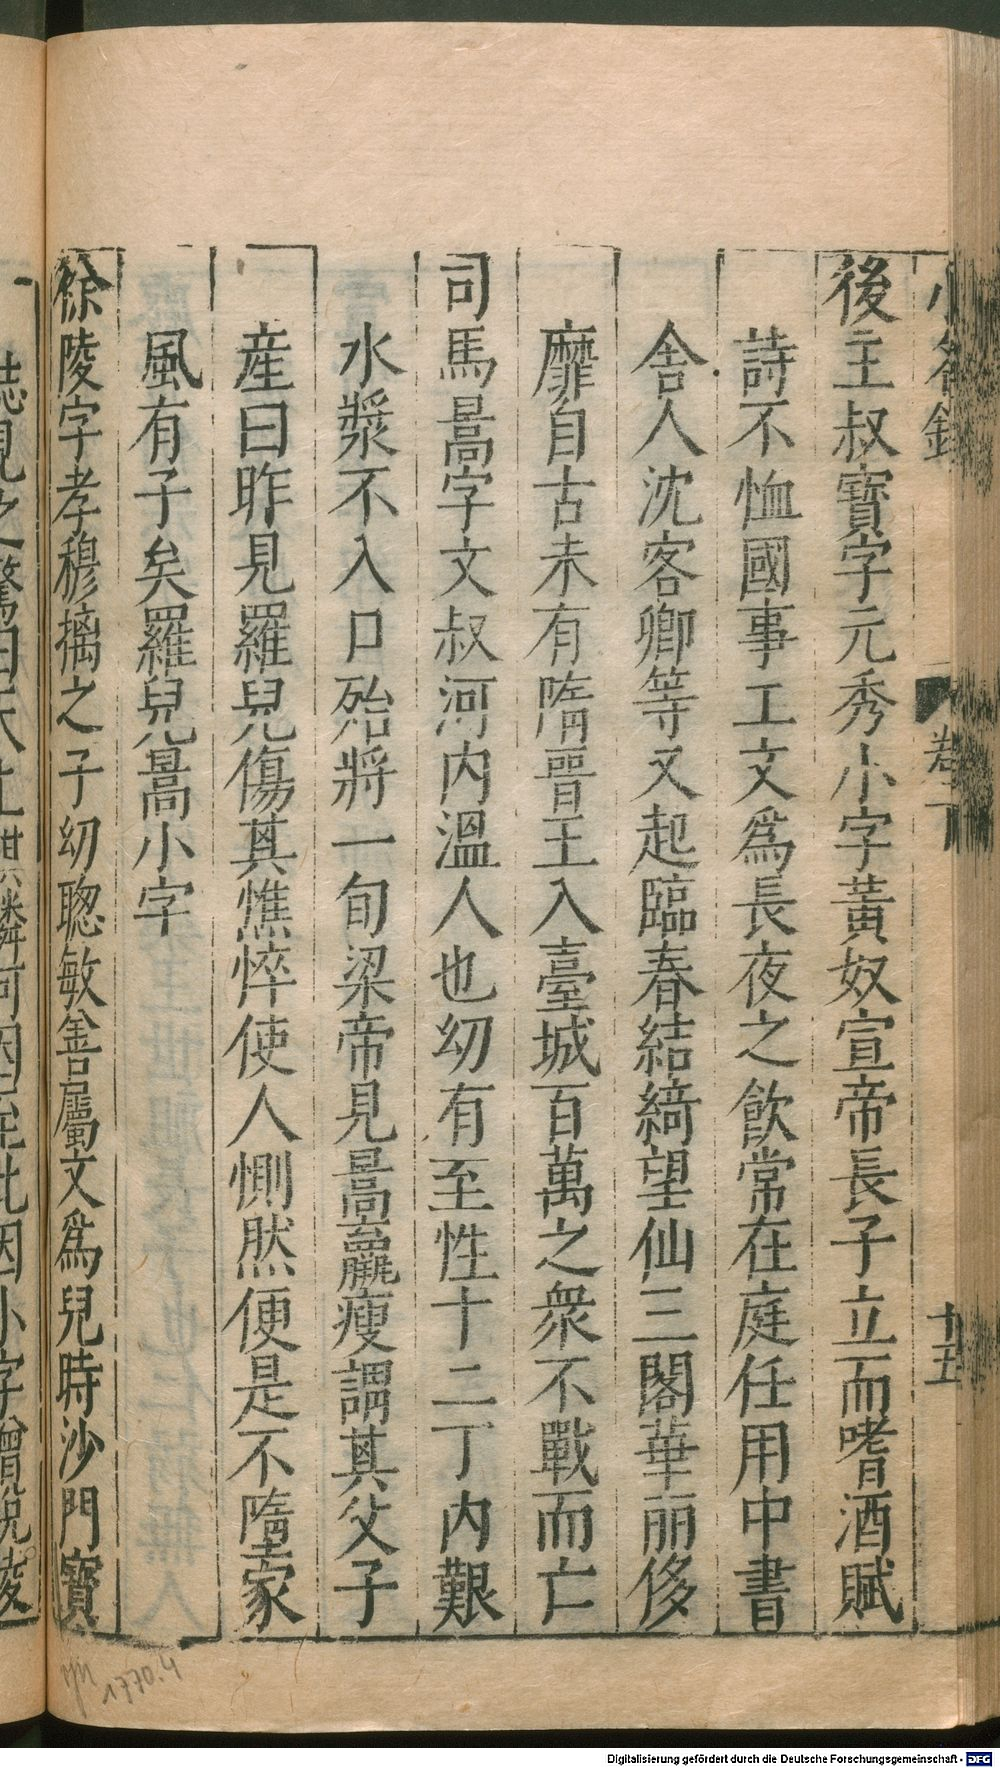 小名錄
卷下
十五
後主叔寶字元秀小字黃奴宣帝長子立而嗜酒賦
詩不恤國事工文爲長夜之飲常在庭任用中書
舍人沈客卿等又起臨春結綺望仙三閣華丽侈
靡自古未有隋晉王入臺城百萬之衆不戰而亡
司馬暠字文叔河内溫人也幼有至性十二丁内艱
水漿不入口殆將一旬梁帝見暠羸瘦謂其父子
産曰昨見羅兒傷其憔悴使人惻然便是不隋家
風有子矣羅兒暠小字
徐陵字孝穆摛之子幼聰敏善屬文爲兒時沙門寶
誌見之驚曰天上麒麟何因至此因小字曾說陵
1770.4
Digitalisierung gefördert durch die Deutsche Forschungsgemeinschaft - DFG